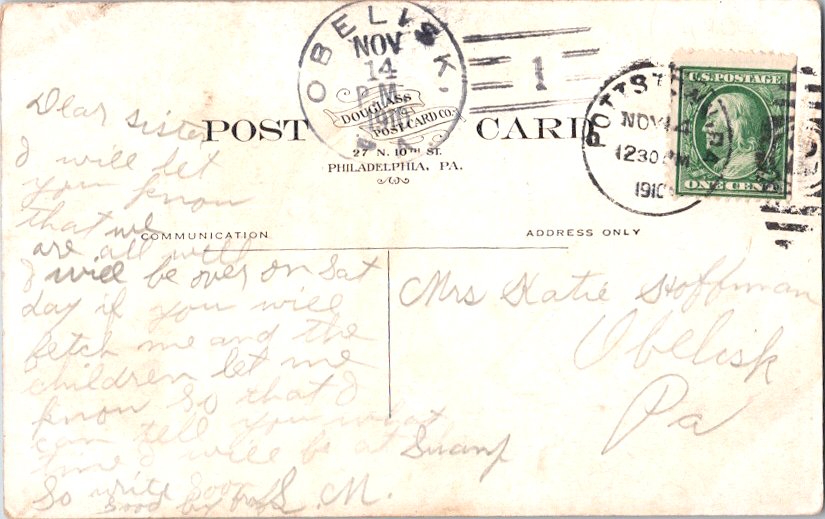 OBELISK,
NOV
14
P.M.
1910
PA.
1
DOUGLASS
POST CARD CO.
POST CARD
27 N. 10TH ST.
PHILADELPHIA, PA.
POTTSTOWN, PA.
NOV 14
1230 PM
1910
U.S. POSTAGE
ONE CENT
COMMUNICATION
ADDRESS ONLY
Dear sister
I will let
you know
that we
are all well
I will be over on Sat
day if you will
fetch me and the
children let me
know so that I
can tell you what
time I will be at the Swamp
So write soon
good by from S. M.
Mrs Katie Hoffman
Obelisk
Pa